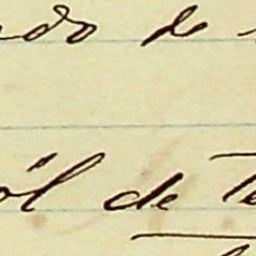 ndo de
öl de Te